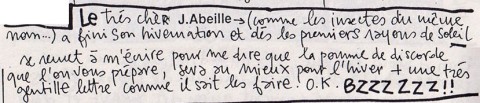 Le trés cher J. Abeille → (comme les insectes du même
nom...) a fini son hivernation et dès les premiers rayons de soleil
se remet à m'écrire pour me dire que la pomme de discorde
que l'on vous prépare, sera au mieux pour l'hiver + une trés
gentille lettre comme il sait les faire. O.K. BZZZZZZ!!